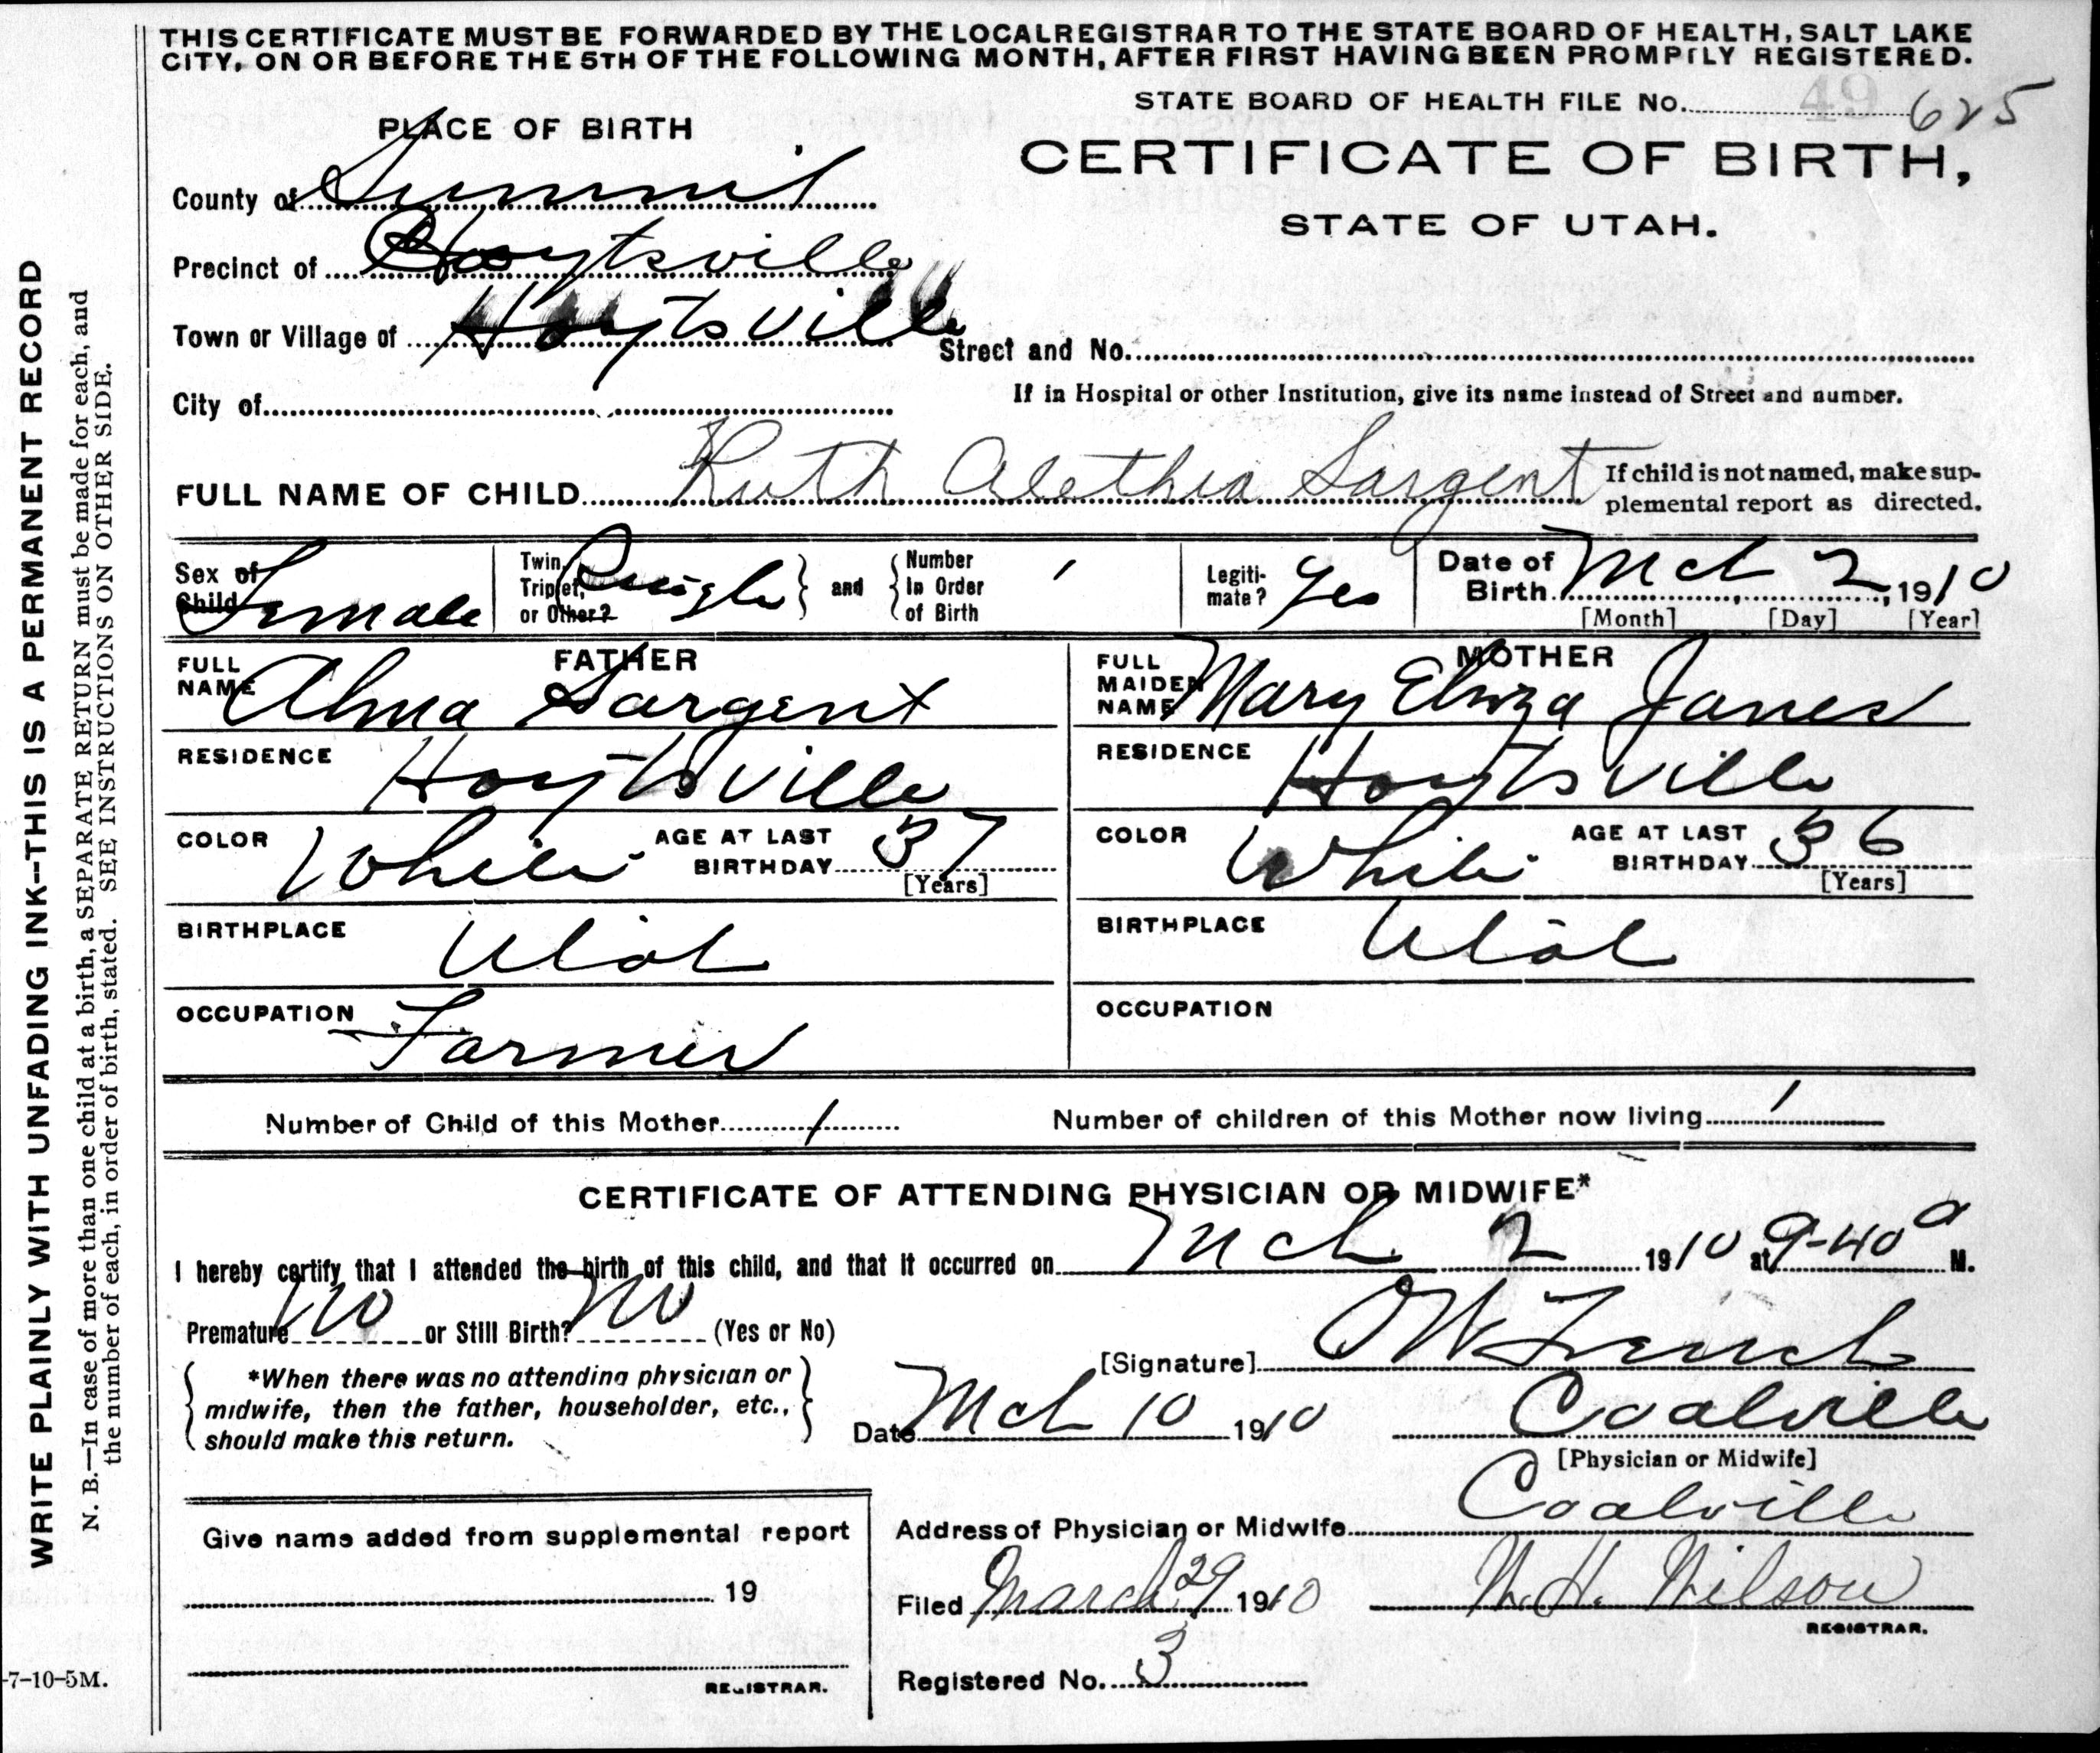 THIS CERTIFICATE MUST BE FORWARDED BY THE LOCAL REGISTRAR TO THE STATE BOARD OF HEALTH, SALT LAKE
CITY, ON OR BEFORE THE 5TH OF THE FOLLOWING MONTH, AFTER FIRST HAVING BEEN PROMPTLY REGISTERED.
STATE BOARD OF HEALTH FILE No. 49 625
PLACE OF BIRTH
CERTIFICATE OF BIRTH,
STATE OF UTAH.
County of Summit
Precinct of Hoytsville
Town or Village of Hoytsville
Street and No.
City of
If in Hospital or other Institution, give its name instead of Street and number.
FULL NAME OF CHILD Ruth Alethia Sargent
If child is not named, make sup-
plemental report as directed.
Sex of Child Female
Twin, Triplet, or Other? Single and Number In Order of Birth 1
Legiti-mate? Yes
Date of Birth Mch 2, 1910
[Month] [Day] [Year]
FATHER
FULL NAME Alma Sargent
RESIDENCE Hoytsville
COLOR White AGE AT LAST BIRTHDAY 37
[Years]
BIRTHPLACE Utah
OCCUPATION Farmer
MOTHER
FULL MAIDEN NAME Mary Eliza Jones
RESIDENCE Hoytsville
COLOR White AGE AT LAST BIRTHDAY 36
[Years]
BIRTHPLACE Utah
OCCUPATION
Number of Child of this Mother 1 Number of children of this Mother now living 1
CERTIFICATE OF ATTENDING PHYSICIAN OR MIDWIFE*
I hereby certify that I attended the birth of this child, and that it occurred on Mch 2 1910 at 9-40 a M.
Premature No or Still Birth? No (Yes or No)
*When there was no attending physician or
midwife, then the father, householder, etc.,
should make this return.
[Signature]
Date Mch 10 1910 Coalville
[Physician or Midwife]
Address of Physician or Midwife Coalville
Give name added from supplemental report
19
REGISTRAR.
Filed March 29 1910 N. H. Wilson
REGISTRAR.
Registered No. 3
WRITE PLAINLY WITH UNFADING INK--THIS IS A PERMANENT RECORD
N. B.—In case of more than one child at a birth, a SEPARATE RETURN must be made for each, and
the number of each, in order of birth, stated. SEE INSTRUCTIONS ON OTHER SIDE.
-7-10-5M.